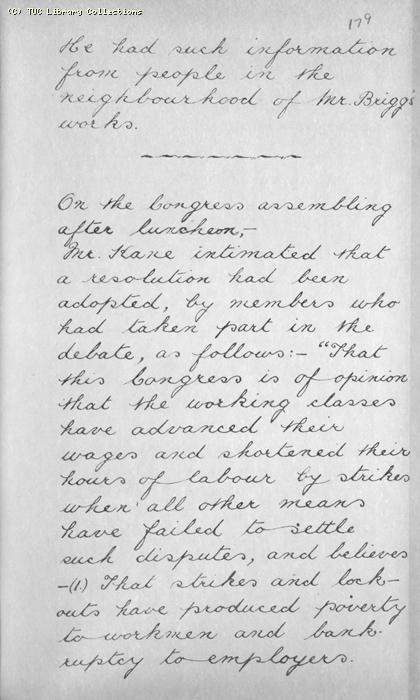 (C) TUC Library Collections
179
He had such information
from people in the
neighbourhood of Mr. Briggs'
works.
On the Congress assembling
after luncheon,-
Mr. Kane intimated that
a resolution had been
adopted, by members who
had taken part in the
debate, as follows:- "That
this Congress is of opinion
that the working classes
have advanced their
wages and shortened their
hours of labour by strikes
when all other means
have failed to settle
such disputes, and believes
-(1.) That strikes and lock-
outs have produced poverty
to workmen and bank-
ruptcy to employers.